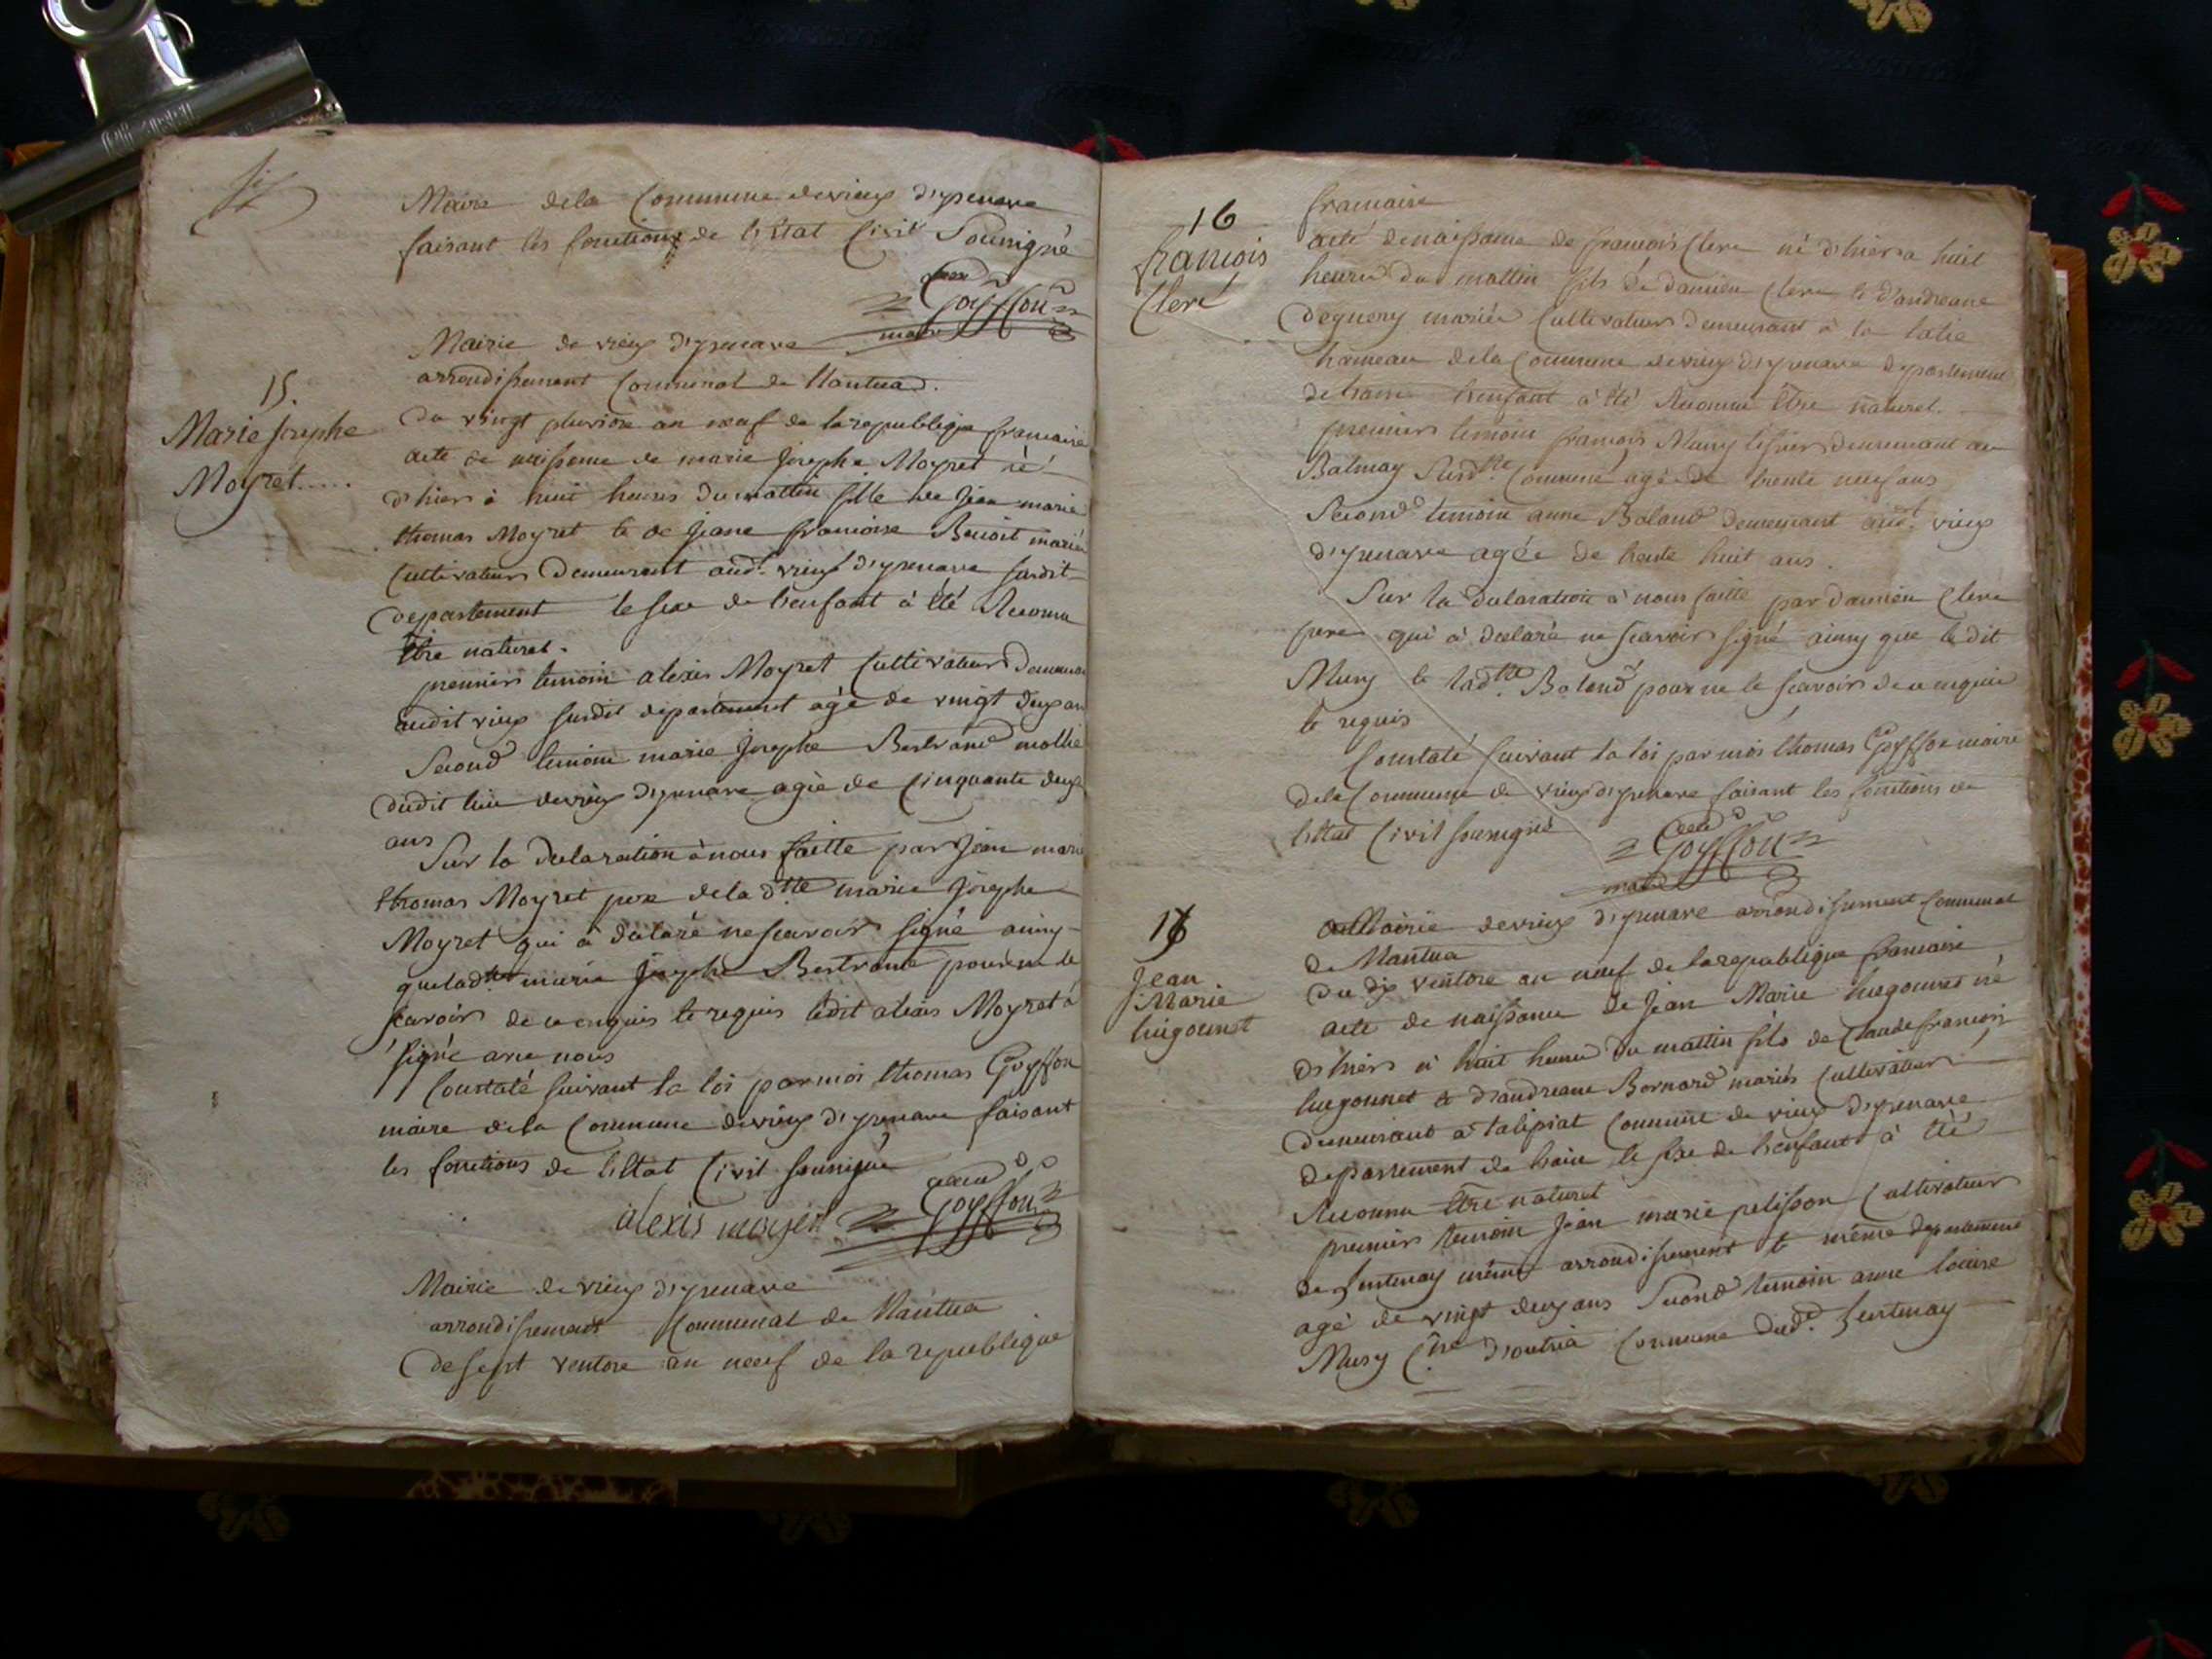 Maire dela Commune devieux d'yzenave
faisant les fonctions de l'Etat Civil Soussigné
Goyffon
maire
Mairie de vieux d'yzenave
arrondissement Communal de Nantua
15.
Marie Josephe
Moyret
Du vingt pluviose an neuf de la republique francaise
acte de naissance de marie Josephe Moyret né
d'hier à huit heures du mattin fille de Jean marie
thomas Moyret et de Jeane francoise Benoit mariés
Cultivateurs Demeurant aud. vieux d'yzenave susdit
departement le sexe de l'enfant à été Reconnu
être naturel.
premier temoin alexis Moyret Cultivateur Demeurant
audit vieux susdit departement agé de vingt deux an
Second temoin marie Josephe Bertrand
dudit lieu devieux d'yzenave agée de Cinquante deux
ans
Sur la declaration à nous faitte par Jean marie
thomas Moyret pere dela dtte marie Josephe
Moyret qui à déclaré ne scavoir signé ainsy
que ladtte marie Josephe Bertrand pour ne le
scavoir de ce enquis et requis ledit alexis Moyret à
signé avec nous
Constaté suivant la loi par moi thomas Goyffon
maire dela Commune devieux d'yzenave faisant
les fonctions de l'Etat Civil soussigné
alexis moyret Goyffon
Mairie de vieux d'yzenave
arrondissement Communal de Nantua
De sept ventose an neuf de la republique
16
francois
Clerc
francaise
acte denaissance de francois Clerc né d'hier à huit
heures du mattin fils de damien Clerc et d'andreane
Deguery mariés Cultivateurs Demeurant à la
hameau dela Commune devieux d'yzenave departement
de l'ain l'enfant à été Reconnu être naturel.
premier temoin francois Mury demeurant au
Balmay susdtte Commune agé de trente neuf ans
Second temoin anne Baland demeurant aud. vieux
d'yzenave agée de trente huit ans.
Sur la declaration à nous faitte par damien Clerc
pere qui à declaré ne scavoir signé ainsy que ledit
Mury et ladtte Baland pour ne le scavoir de ce enquis
et requis
Constaté suivant la loi par moi thomas Goyffon maire
dela Commune de vieux d'yzenave faisant les fonctions de
l'Etat Civil soussigné
Goyffon
maire
17
Jean
Marie
hugonnet
Mairie devieux d'yzenave arrondissement Communal
de Nantua
Du dix ventose an neuf de la republique francaise
acte de naissance de Jean Marie hugonnet né
d'hier à huit heures du mattin fils de Claude francois
hugonnet et d'andreane Bornard mariés Cultivateurs
demeurant à talipiat Commune de vieux d'yzenave
departement de l'ain le sexe de l'enfant à été
Reconnu être naturel
premier temoin Jean marie pelisson Cultivateur
de même arrondissement et même departement
agé de vingt deux ans Second temoin anne louise
Mury d'outria Commune dud.